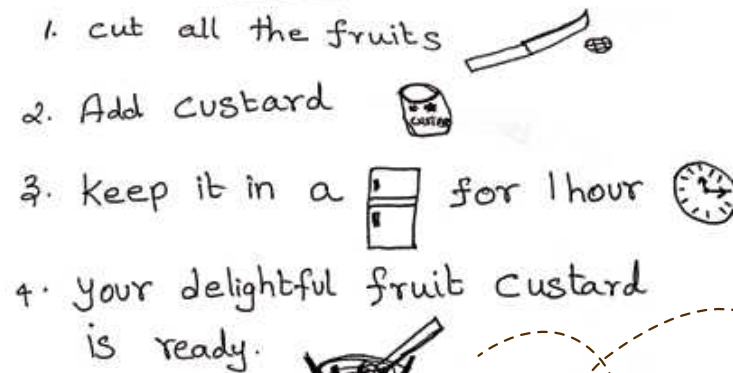 1. cut all the fruits
2. Add custard
CUSTAR
3. keep it in a for 1 hour
4. your delightful fruit custard
is ready.